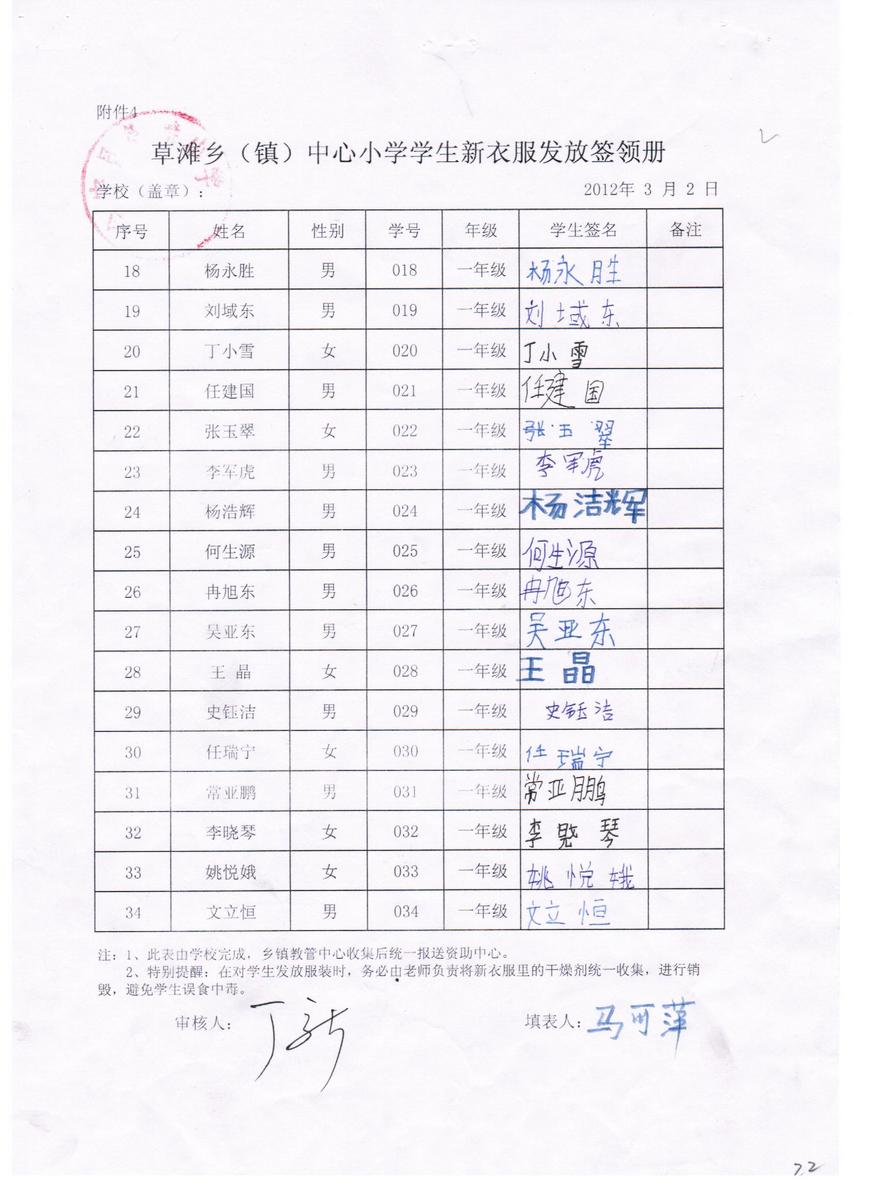 附件4
草滩乡（镇）中心小学学生新衣服发放签领册
学校（盖章）： 2012年 3 月 2 日
序号 姓名 性别 学号 年级 学生签名 备注
18 杨永胜 男 018 一年级 杨永胜
19 刘域东 男 019 一年级 刘域东
20 丁小雪 女 020 一年级 丁小雪
21 任建国 男 021 一年级 任建国
22 张玉翠 女 022 一年级 张玉翠
23 李军虎 男 023 一年级 李军虎
24 杨浩辉 男 024 一年级 杨洁辉
25 何生源 男 025 一年级 何生源
26 冉旭东 男 026 一年级 冉旭东
27 吴亚东 男 027 一年级 吴亚东
28 王 晶 女 028 一年级 王 晶
29 史钰洁 男 029 一年级 史钰洁
30 任瑞宁 女 030 一年级 任瑞宁
31 常亚鹏 男 031 一年级 常亚鹏
32 李晓琴 女 032 一年级 李晓琴
33 姚悦娥 女 033 一年级 姚悦娥
34 文立恒 男 034 一年级 文立恒
注：1、此表由学校完成，乡镇教管中心收集后统一报送资助中心。
2、特别提醒：在对学生发放服装时，务必由老师负责将新衣服里的干燥剂统一收集，进行销
毁，避免学生误食中毒。
审核人： 填表人：马可萍
22